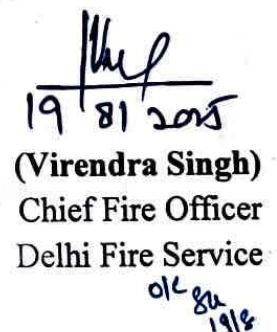 19/8/2025
(Virendra Singh)
Chief Fire Officer
Delhi Fire Service
o/c
19/8